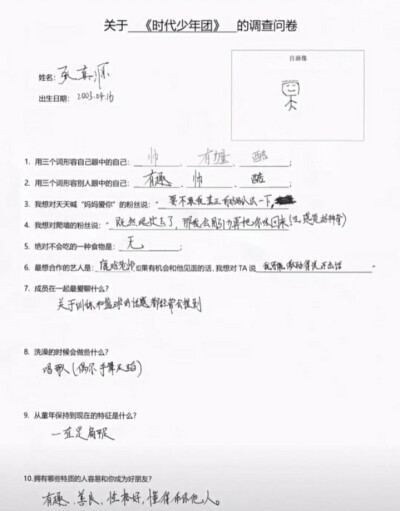 关于 《时代少年团》 的调查问卷
自画像
姓名: 张真源
出生日期: 2003.04.16
1. 用三个词形容自己眼中的自己: 帅 有趣 酷 ;
2. 用三个词形容别人眼中的自己: 有趣 帅 酷 ;
3. 我想对天天喊“妈妈爱你”的粉丝说: 要不要 一下,
4. 我想对爬墙的粉丝说: 既然爬出去了,那我会努力再把你 回来
5. 绝对不会吃的一种食物是: 无 ;
6. 最想合作的艺人是: 鹿晗老师 如果有机会和他见面的话,我想对 TA 说
7. 成员在一起最爱聊什么?
关于训练和篮球的话题都经常会提到
8. 洗澡的时候会做些什么?
唱歌(偶尔手算太占)
9. 从童年保持到现在的特征是什么?
一直是
10.拥有哪些特质的人容易和你成为好朋友?
有趣、善良、性格好,懂得 他人。